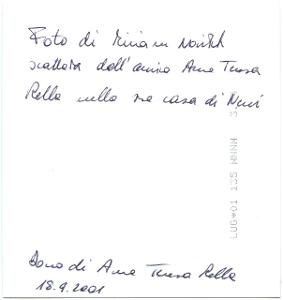 Foto di Miriam Novitch
scattata dall'amica Anna Teresa
Rella nella sua casa di Nervi
LUG*01 135 NNNN 3
Dono di Anna Teresa Rella
18.9.2001